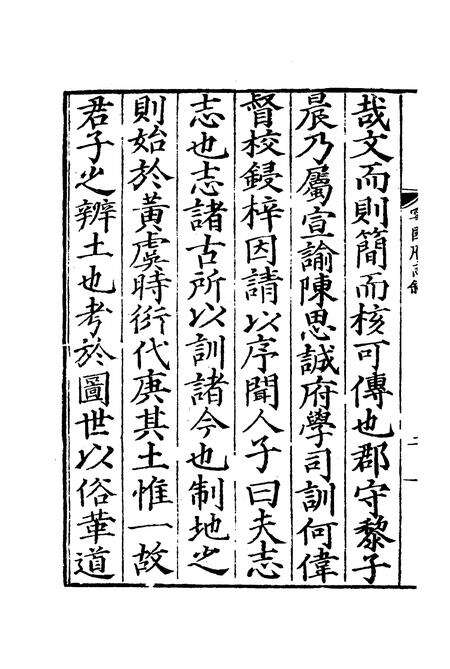 哉文而則簡而核可傳也郡守黎子
晨乃屬宣諭陳思誠府學司訓何偉
督校鋟梓因請以序聞人子曰夫志
志也志諸古所以訓諸今也制地之
則始於黃虞時衍代庚其土惟一故
君子之辨土也考於圖世以俗革道
寧國府志